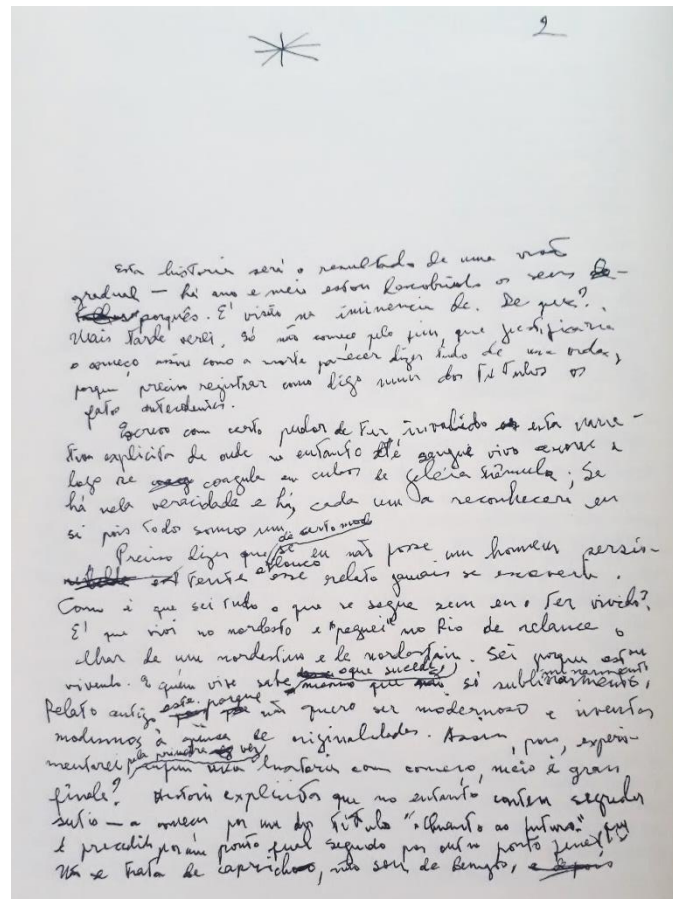 2
Esta historia será o resultado de uma visão
gradual — há ano e meio estou descobrindo os seus
porquês. É visão na iminencia de. De que?
Mais tarde verei. Só não começo pelo fim, que justificaria
o começo como a morte parecer dizer tudo de uma
porque preciso registrar como digo num dos titulos os
fatos antecedentes.
Escrevo com certo pudor de ter invadido esta narra-
tiva explicita de onde no entanto até sangue vivo escorre e
logo se coagula em cubos de geléia trêmula; Se
há nela veracidade e há, cada um a reconhecerá em
si pois todos somos um,
de certo modo
Preciso dizer que se eu não fosse um homem persis-
tente e esse relato jamais se escreveria.
Como é que sei tudo o que se segue sem eu o ter vivido?
É que vivi no nordeste e "peguei" no Rio de relance o
olhar de um nordestino e de nordestina. Sei porque estou
vivendo. E quem vive sabe o que sucede, mesmo que só
Relato antigo este, porque não quero ser modernoso e inventar
modismos à guisa de originalidades. Assim, pois, experi-
mentarei pela primeira vez uma historia com comeco, meio e gran
finale? Historia explicita que no entanto contem segredos
sutis — a começar por um dos titulos "Quanto ao futuro."
é precedido por um ponto final seguido por outro ponto final
Não se trata de capricho, não sou de